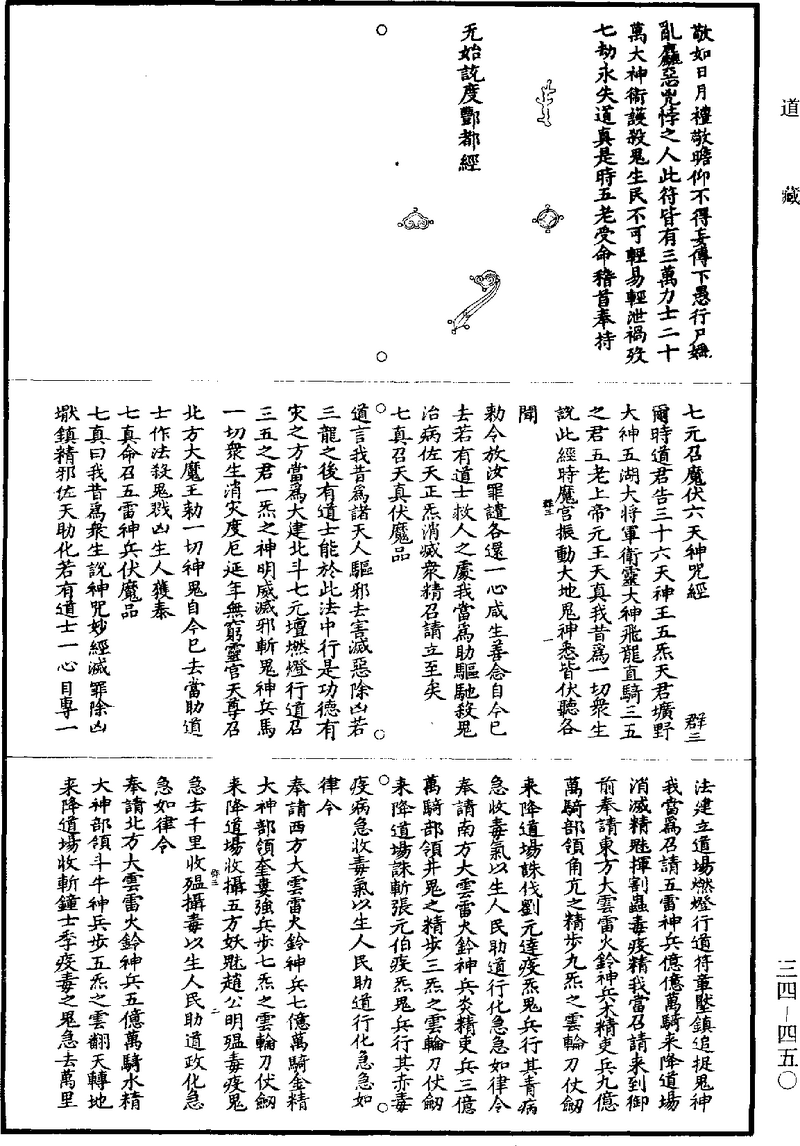 道藏
敬如日月禮敬瞻仰不得妄傳下愚行尸嫉
亂麤惡兇悖之人此符皆有三萬力士二十
萬大神衛護殺鬼生民不可輕易輕泄禍歿
七劫永失道真是時五老受命稽首奉持
元始說度酆都經
七元召魔伏六天神咒經
群三
爾時道君告三十六天神王五炁天君壙野
大神五湖大將軍衛靈大神飛龍直騎三五
之君五老上帝元王天真我昔為一切眾生
說此經時魔宮振動大地鬼神悉皆伏聽各
群三
一
聞
勑令放汝罪譴各還一心咸生善念自今已
去若有道士救人之處我當為助驅馳殺鬼
治病佐天正炁消滅眾精召請立至矣
七真召天真伏魔品
道言我昔為諸天人驅邪去害滅惡除凶若
三龍之後有道士能於此法中行是功德有
灾之方當為大建北斗七元壇燃燈行道召
三五之君一炁之神明威滅邪斬鬼神兵馬
一切眾生消灾度厄延年無窮靈官天尊召
北方大魔王勑一切神鬼自今已去當助道
士作法殺鬼戮凶生人獲泰
七真命召五雷神兵伏魔品
七真曰我昔為眾生說神咒妙經滅罪除凶
猒鎮精邪佐天助化若有道士一心目專一
法建立道場燃燈行道符章墼鎮追捉鬼神
我當為召請五雷神兵億億萬騎來降道場
消滅精魅揮割蟲毒疫精我當召請來到御
前奉請東方大雲雷火鈴神兵木精吏兵九億
萬騎部領角亢之精步九炁之雲輪刀伏劒
來降道場誅伐劉元達疫炁鬼兵行其青病
急收毒氣以生人民助道行化急急如律令
奉請南方大雲雷火鈴神兵炎精吏兵三億
萬騎部領井鬼之精步三炁之雲輪刀伏劒
來降道場誅斬張元伯疫炁鬼兵行其赤毒
疫病急收毒氣以生人民助道行化急急如
律令
奉請西方大雲雷火鈴神兵七億萬騎金精
大神部領奎婁強兵步七炁之雲輪刀伏劒
來降道場收攝五方妖魅趙公明殟毒疫鬼
群三
二
急去千里收殟攝毒以生人民助道政化急
急如律令
奉請北方大雲雷火鈴神兵五億萬騎水精
大神部領斗牛神兵步五炁之雲翻天轉地
來降道場收斬鐘士季疫毒之鬼急去萬里
三四－四五〇